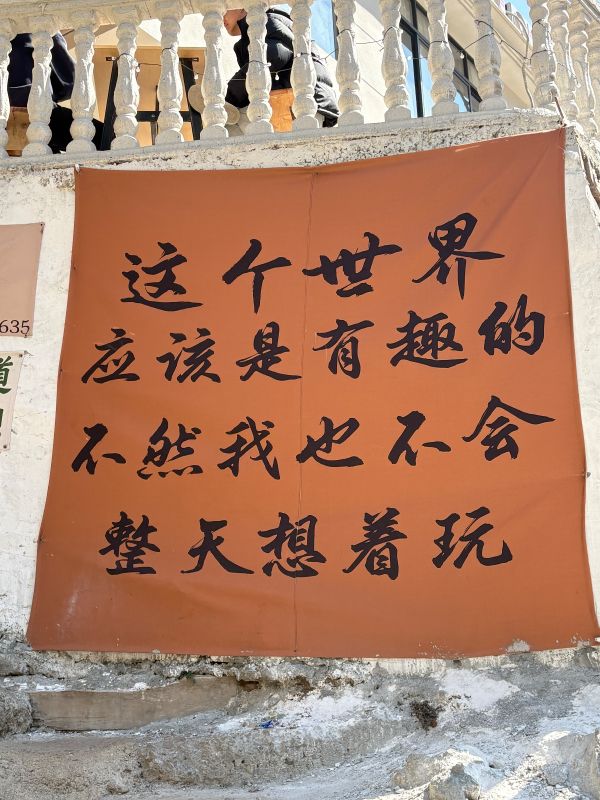 这个世界
应该是有趣的
不然我也不会
整天想着玩
635
道